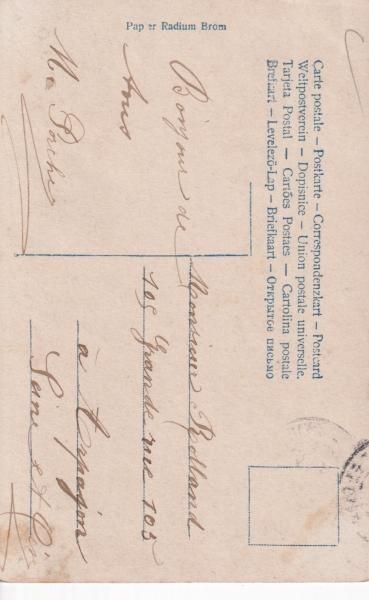 Pap er Radium Brom
Carte postale – Postkarte – Correspondenzkart – Postcard
Weltpostverein – Dopisnice – Union postale universelle.
Tarjeta Postal — Cartões Postaes — Cartolina postale
Brefkart – Levelező-Lap – Briefkaart – Открытое письмо
Bonjour de
tous
Me Porche
Monsieur Rolland
105 Grande rue 105
à
Seine et